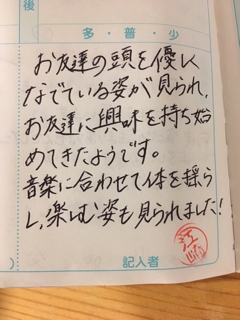 後
多・普・少
お友達の頭を優しく
なでている姿が見られ、
お友達に興味を持ち始
めてきたようです。
音楽に合わせて体を揺ら
し、楽しむ姿も見られました!
記入者